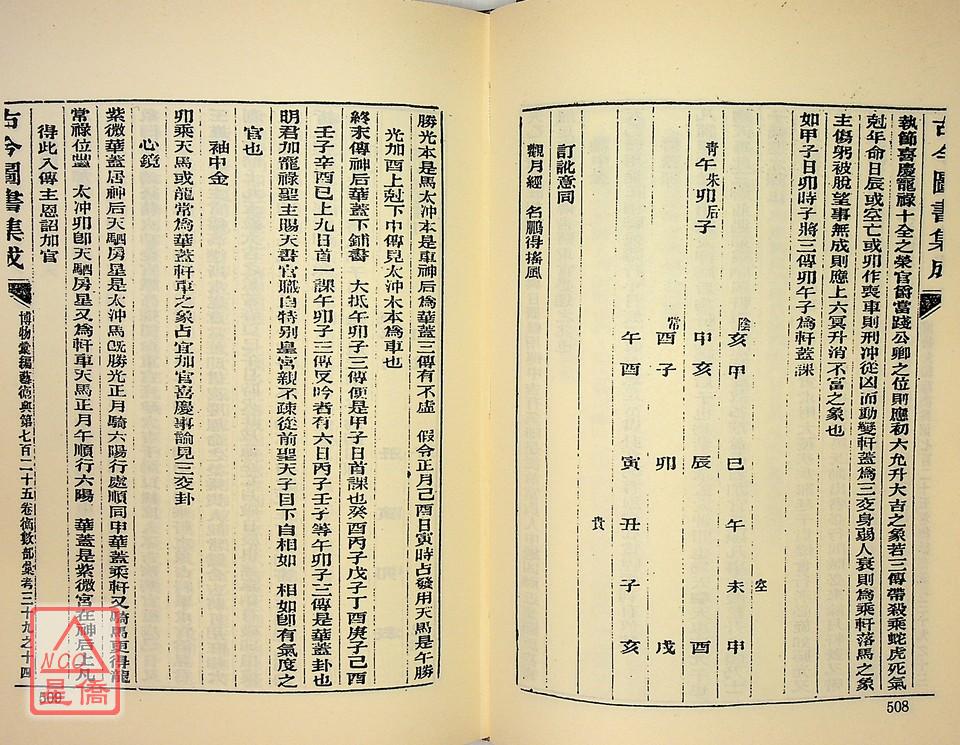 古今圖書集成
執節喜慶寵祿十全之榮官爵當踐公卿之位則應初六允升大吉之象若三傳帶殺乘蛇虎死氣
尅年命日辰或空亡或卯作喪車則刑冲從凶而動變軒蓋為三交身弱人衰則為乘軒落馬之象
主傷躬被脫望事無成則應上六冥升消不富之象也
如甲子日卯時子將三傳卯午子為軒蓋課
陰 亥甲 巳午未申 空
青午朱卯后子 甲亥 辰 酉
常 酉子 卯 戌
午酉 寅丑子亥
貴
訂訛意同
觀月經 名鵬得搖風
508
勝光本是馬太沖本是車神后為華蓋三傳有不虛 假令正月己酉日寅時占發用天馬是午勝
光加酉上尅下中傳見太沖木本為車也
終末傳神后華蓋下鋪書 大抵午卯子三傳便是甲子日首課也癸酉丙子戊子丁酉庚子己酉
壬子辛酉巳上九日首一課午卯子三傳反吟者有六日丙子壬子等午卯子三傳是華蓋卦也
明君加寵祿聖主賜天書官職自特別皇宮親不疎從前聖天子目下自相如 相如卽有氣度之
官也
袖中金
卯乘天馬或龍常為華蓋軒車之象占宜加官喜慶事論見三交卦
心鏡
紫微華蓋居神后天駟房星是太沖馬旣勝光正月騎六陽行處順同申華蓋乘軒又騎馬更得龍
常祿位豐 太沖卯卽天駟房星又為軒車天馬正月午順行六陽 華蓋是紫微宮在神后上凡
得此入傳主恩詔加官
古今圖書集成
博物彙編藝術典第七百二十五卷術數部彙考三十九之十四
509
NCC
星僑